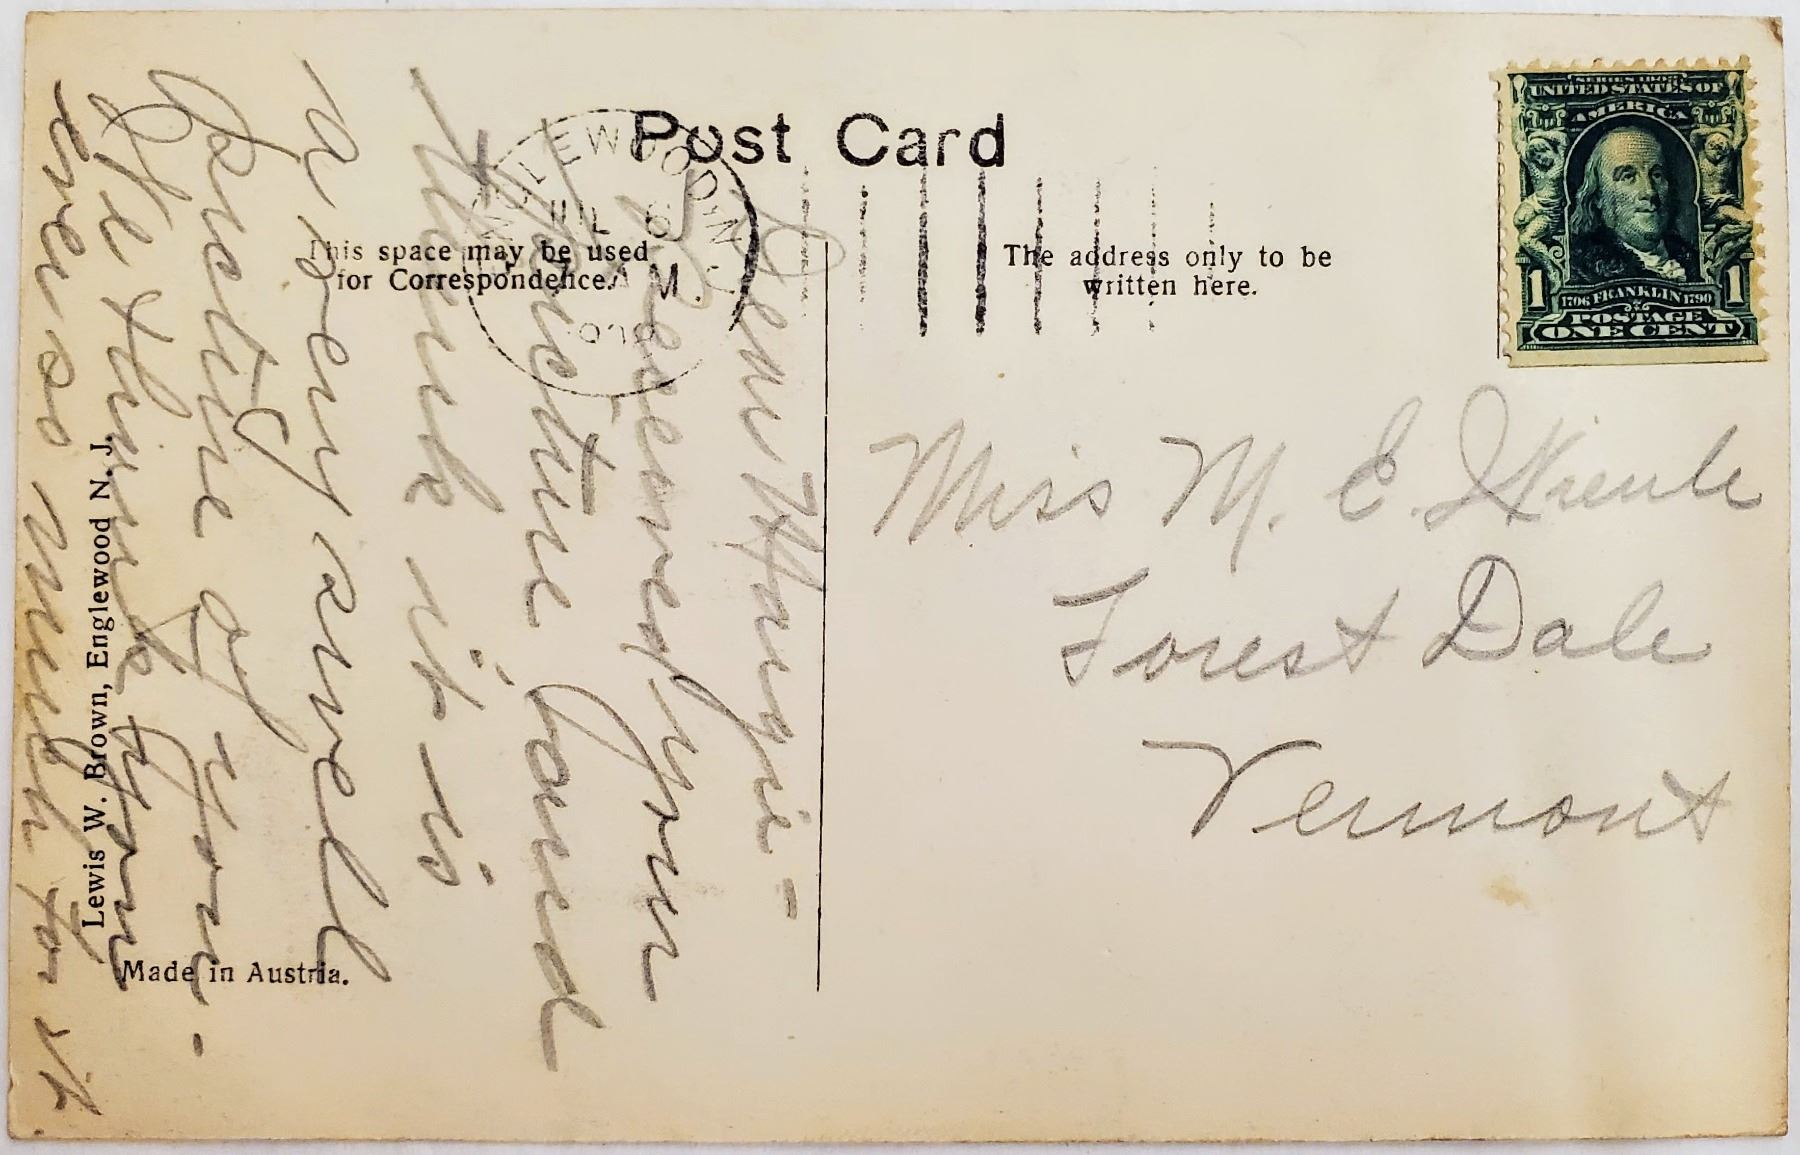 Post Card
This space may be used
for Correspondence.
The address only to be
written here.
ENGLEWOOD, N.J.
JUL 6
M.
SERIES 1902
UNITED STATES OF
AMERICA
1 1706 FRANKLIN 1790 1
POSTAGE
ONE CENT
Dear Margie -
Received your
picture and
think it is
a very swell
picture of you -
We thank you
very much for it
Miss M. E.
Forest Dale
Vermont
Lewis W. Brown, Englewood N. J.
Made in Austria.